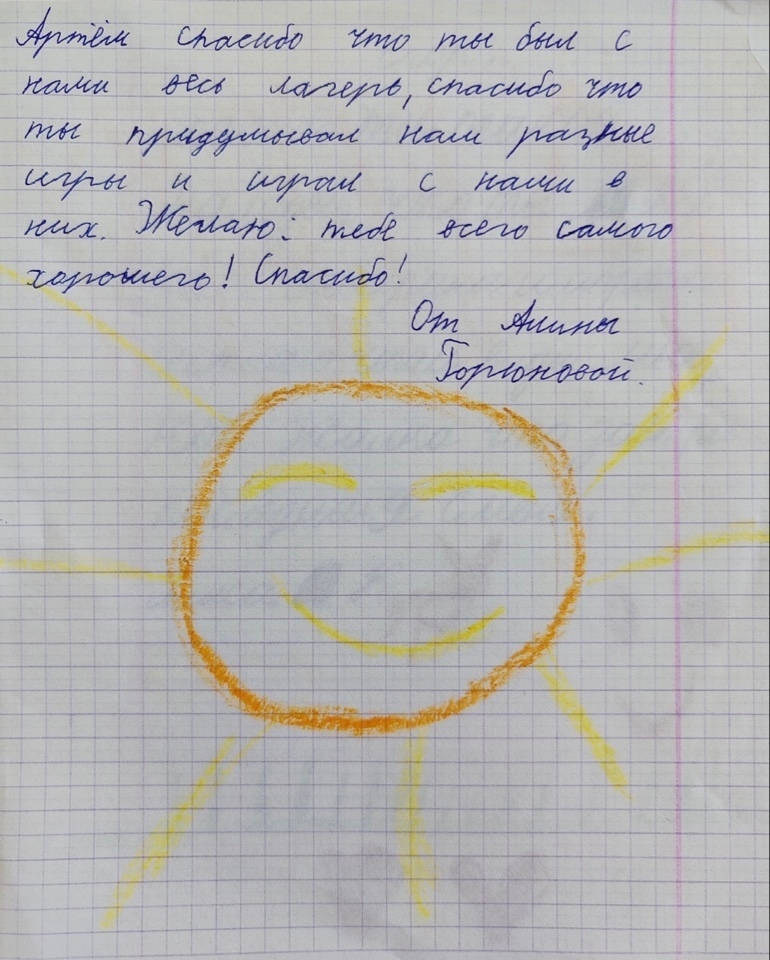 Артём спасибо что ты был с
нами весь лагерь, спасибо что
ты придумывал нам разные
игры и играл с нами в
них. Желаю: тебе всего самого
хорошего! Спасибо!
От Алины
Горюновой.